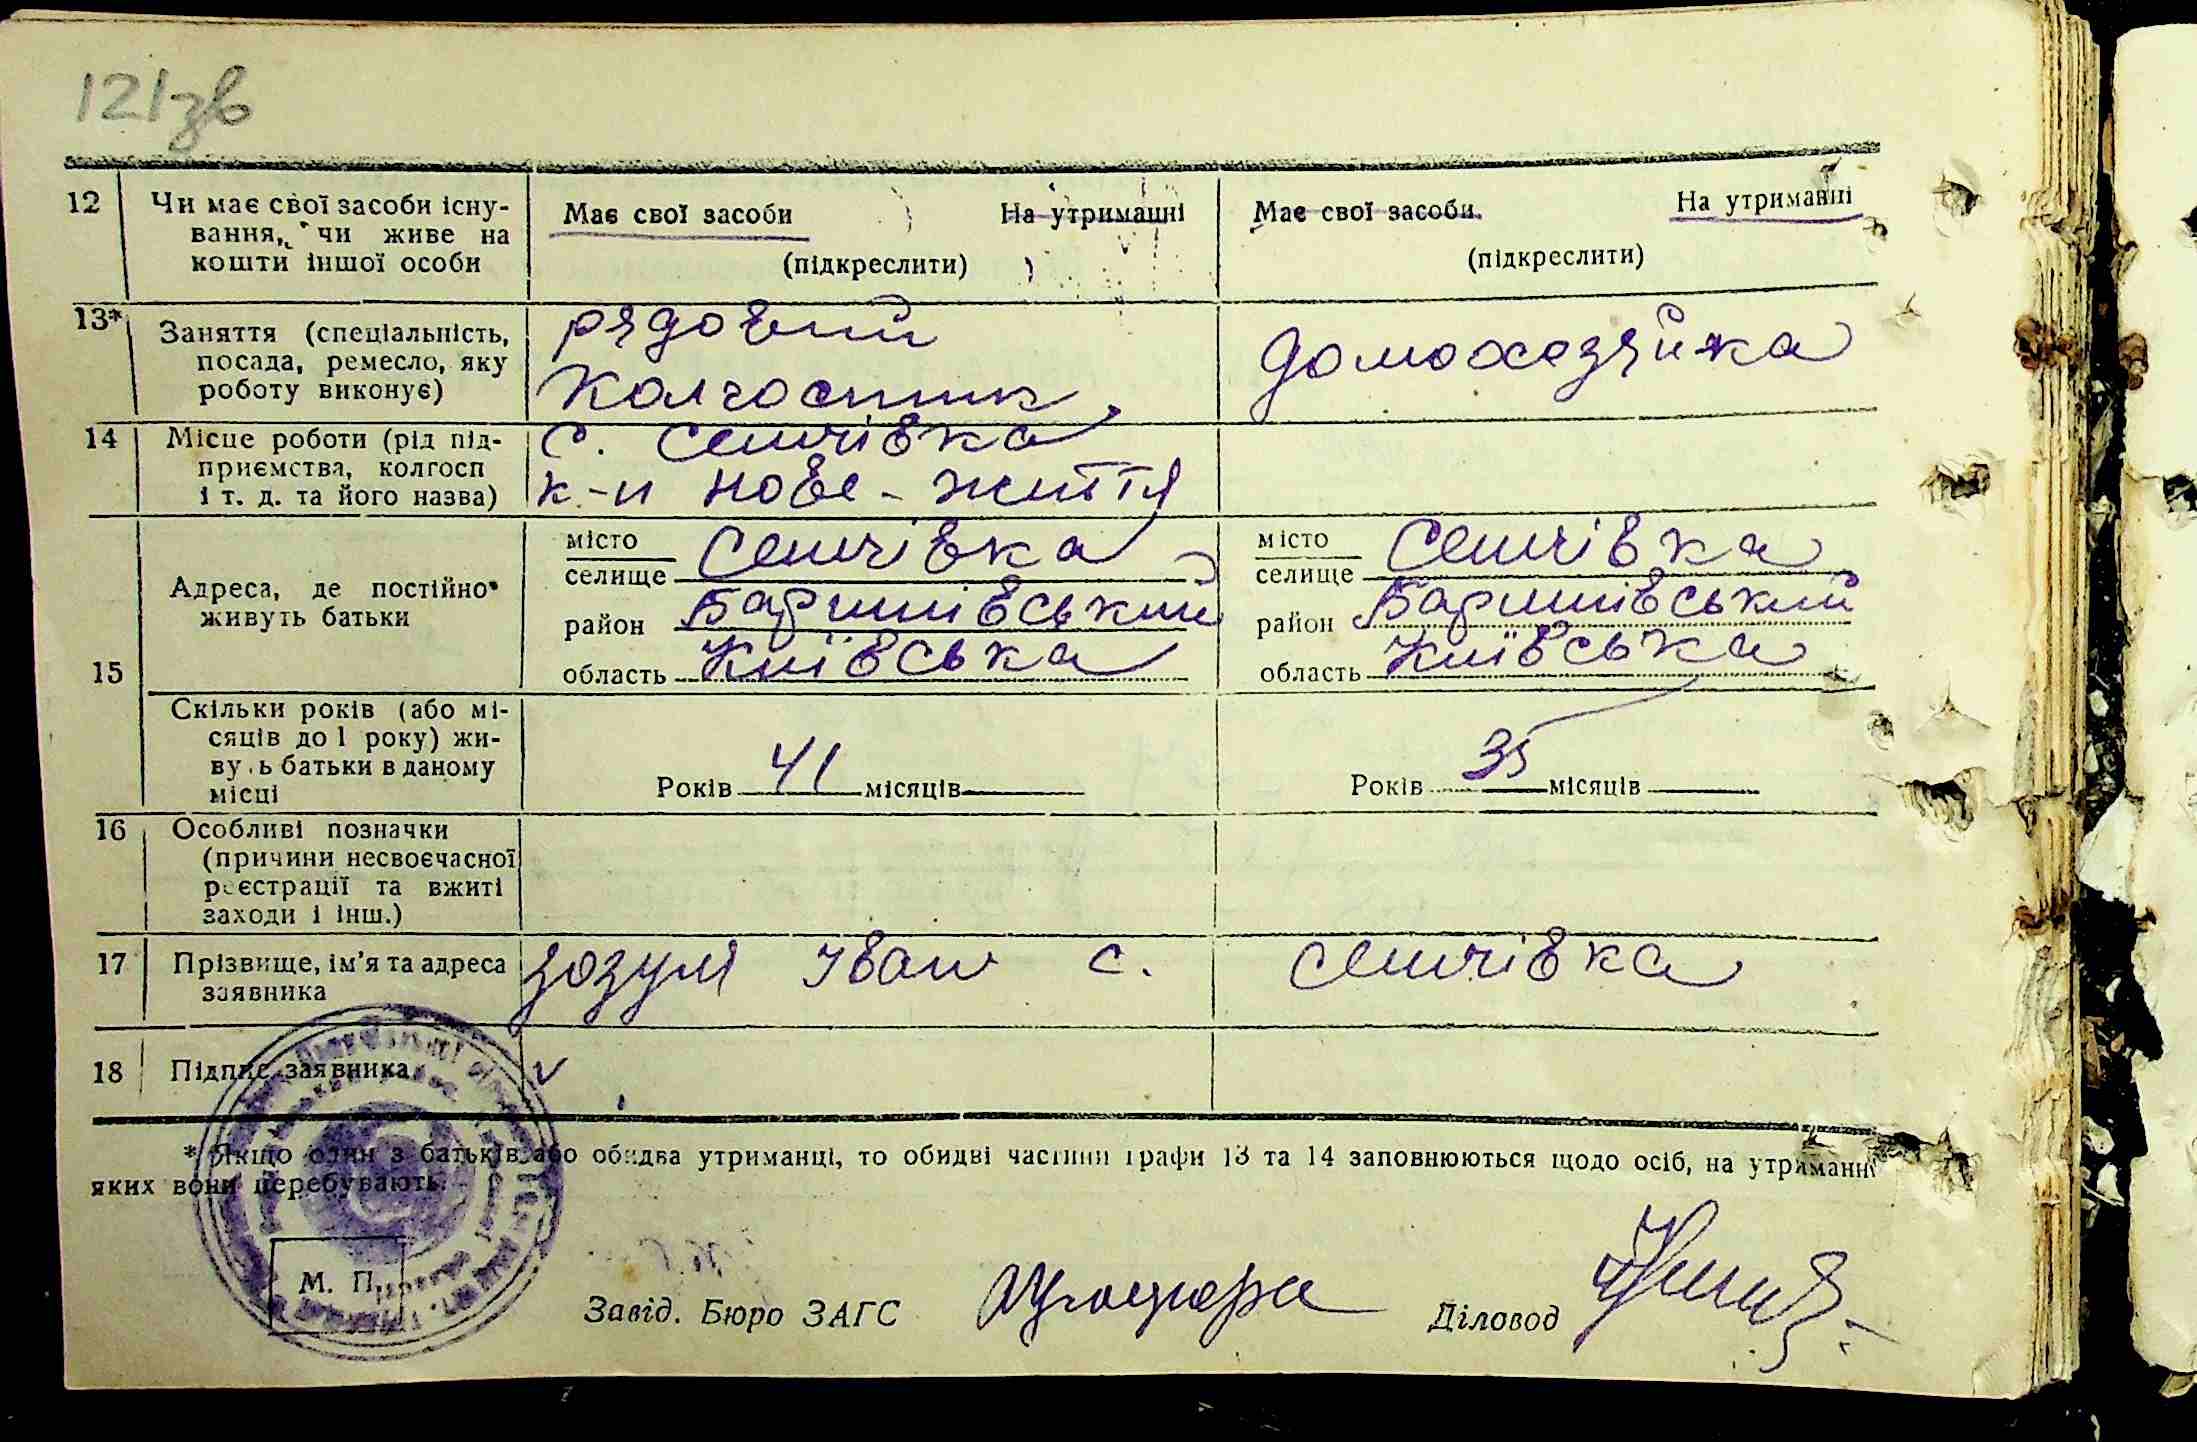 121зв
12 Чи має свої засоби існу- Має свої засоби На утриманні Має свої засоби На утриманні
вання, чи живе на (підкреслити) (підкреслити)
кошти іншої особи
13* Заняття (спеціальність, рядовий домохозяйка
посада, ремесло, яку колгоспник
роботу виконує)
14 Місце роботи (рід під- С. Сенчівка
приємства, колгосп
і т. д. та його назва) к-п нове-життя
15 Адреса, де постійно живуть батьки
місто селище Сенчівка місто селище Сенчівка
район Баришівський район Баришівський
область Київська область Київська
Скільки років (або мі-
сяців до 1 року) жи-
вуть батьки в даному Років 41 місяців Років 35 місяців
місці
16 Особливі позначки
(причини несвоєчасної
реєстрації та вжиті
заходи і інш.)
17 Прізвище, ім'я та адреса Зозуля Іван С. Сенчівка
заявника
18 Підпис заявника
* Якщо один з батьків або обидва утриманці, то обидві частини графи 13 та 14 заповнюються щодо осіб, на утриманні
яких вони перебувають.
М. П.
Завід. Бюро ЗАГС Діловод